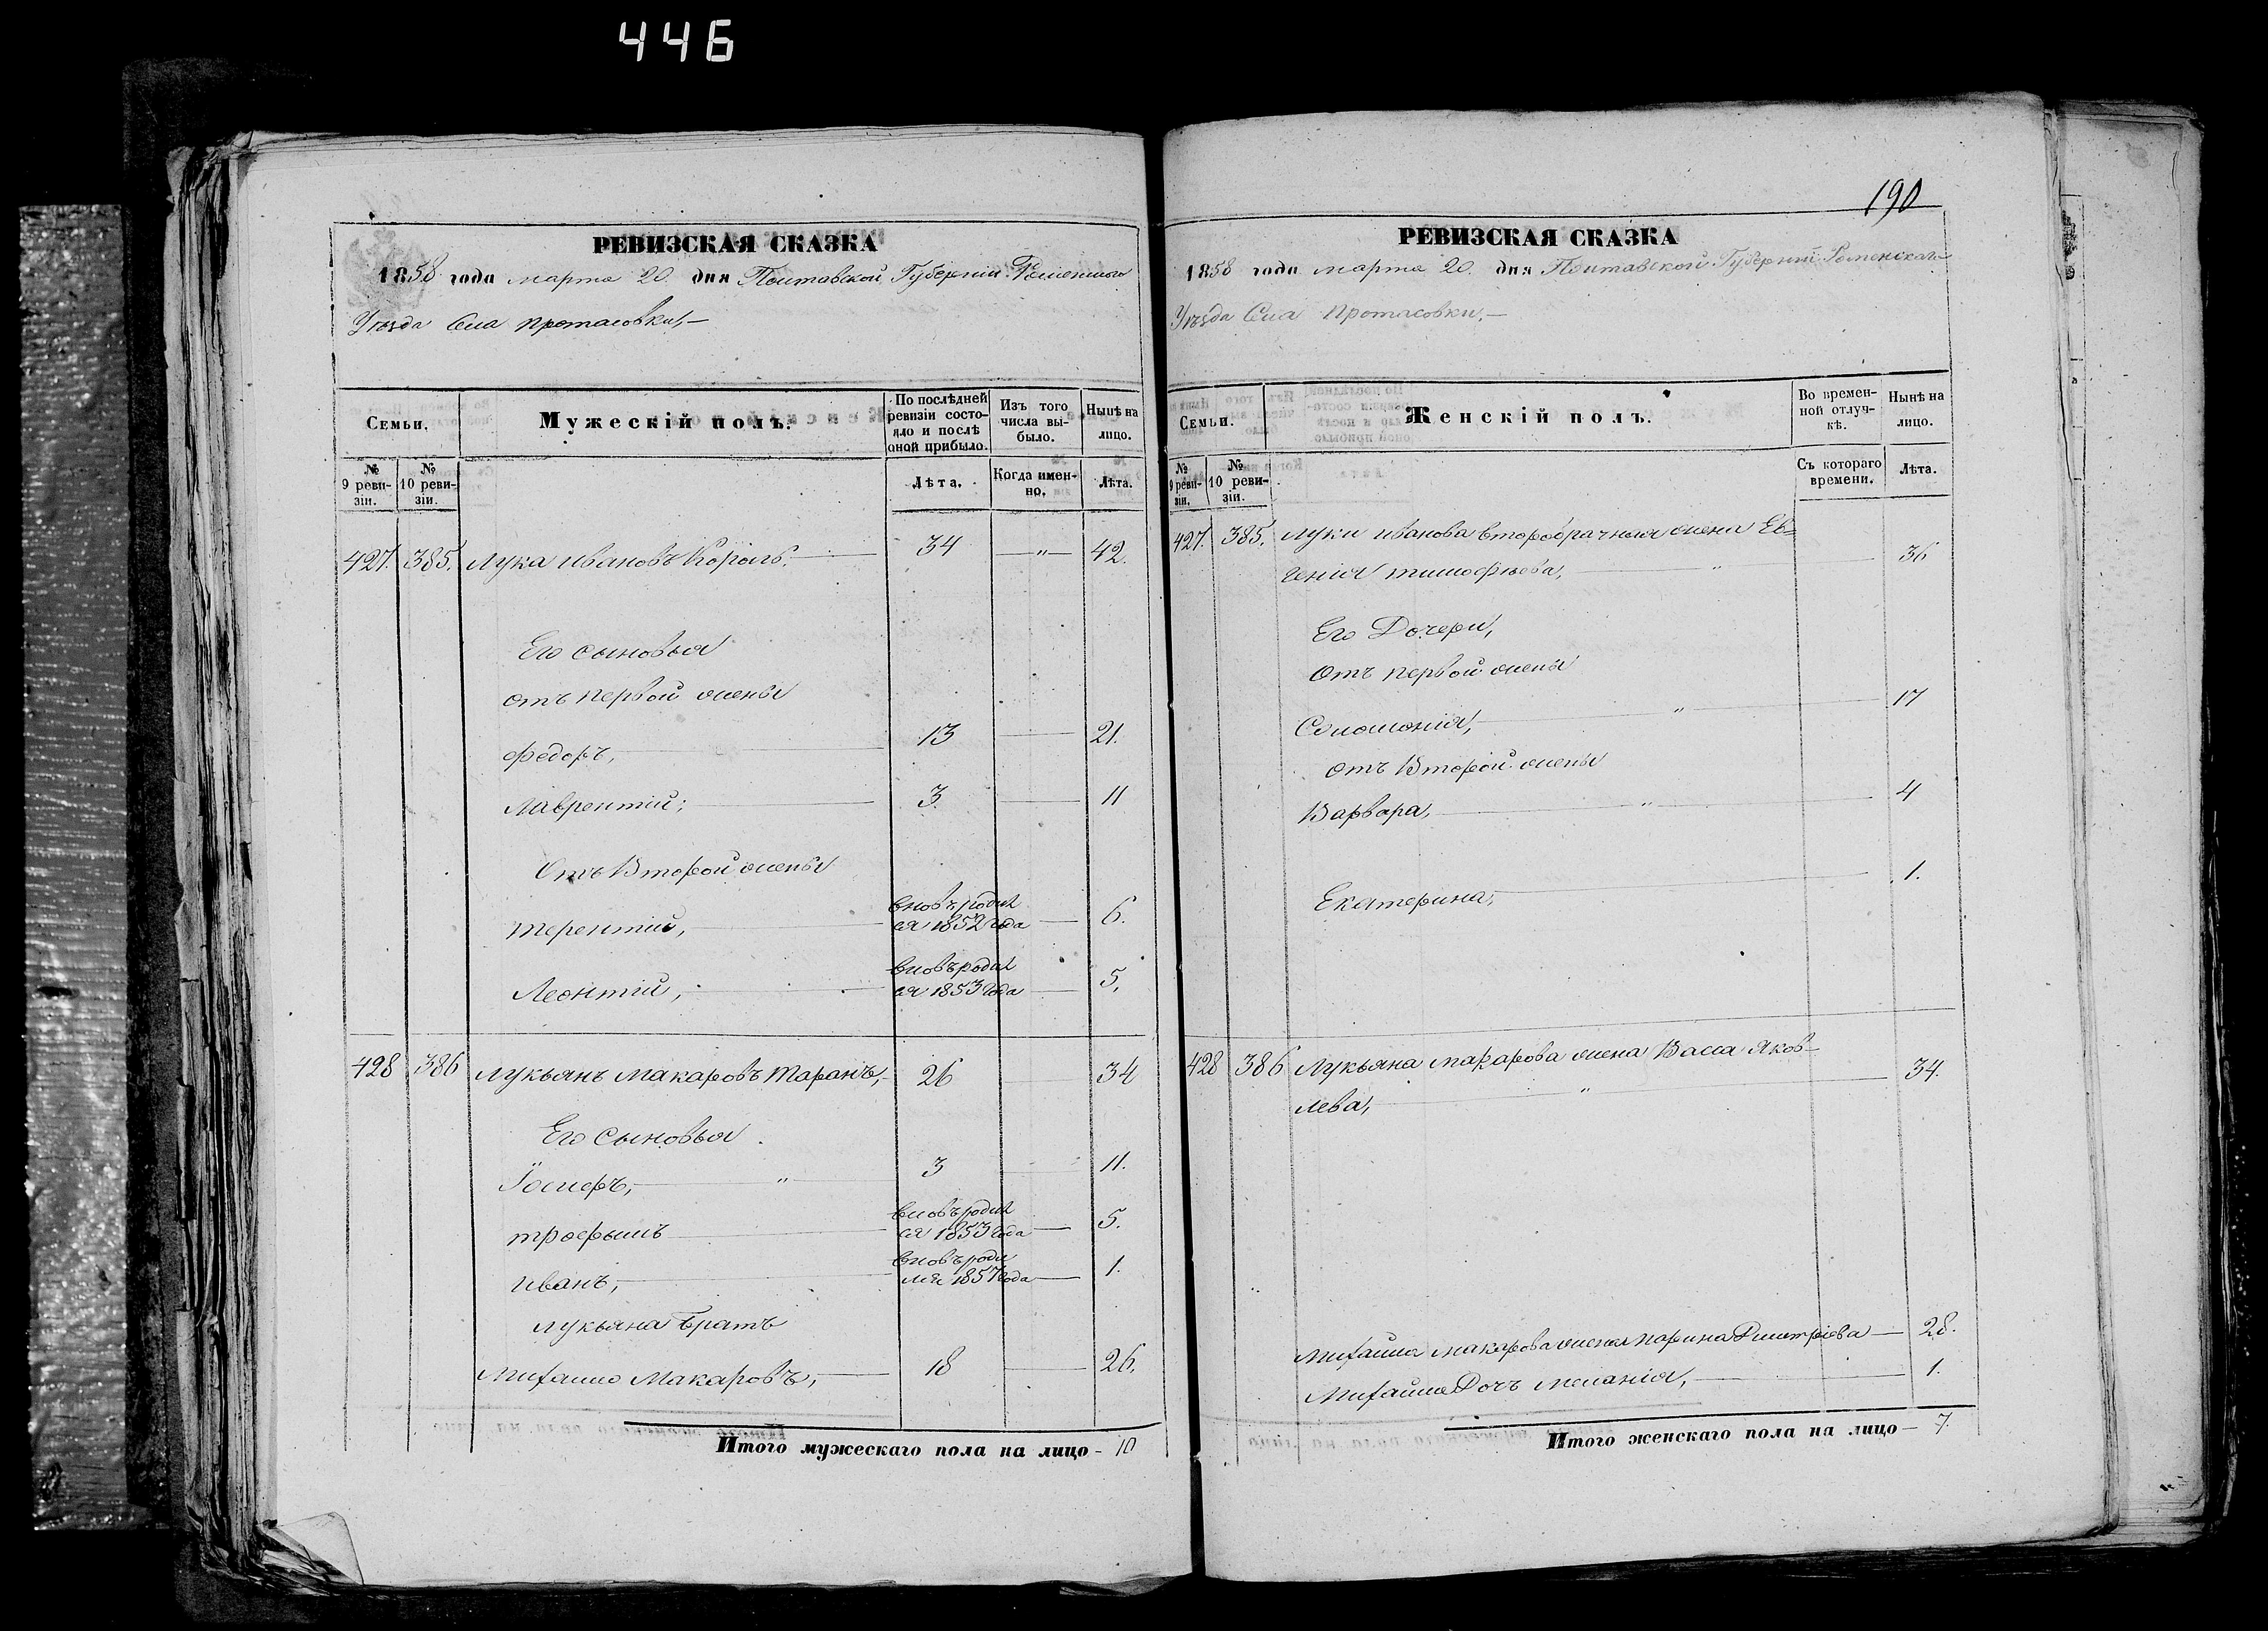 446
РЕВИЗСКАЯ СКАЗКА
1858 года марта 20 дня Полтавской Губерніи Роменского
Уѣзда Села Протасовки,—
Семьи.
Мужескій полъ.
По послѣдней ревизіи состояло и послѣ оной прибыло.
Изъ того числа выбыло.
Нынѣ на лицо.
№ 9 ревизіи.
№ 10 ревизіи.
Лѣта.
Когда именно.
Лѣта.
427. 385. Лука Ивановъ Король. 34 — " — 42.
Его сыновья
отъ первой жены
Федоръ, 13 21.
Лаврентій; 3. 11
Отъ Второй жены
Терентій, вновь родил
ся 1852 года 6.
Леонтій, вновь родил
ся 1853 года 5.
428 386 Лукьянъ Макаровъ Таранъ, 26 34
Его Сыновья
Іосифъ, " 3 11.
Трофымъ вновь родил
ся 1853 года 5.
Иванъ, вновь роди
лся 1857 года 1.
Лукьяна братъ
Михайло Макаровъ, 18 26.
Итого мужескаго пола на лицо - 10
190
РЕВИЗСКАЯ СКАЗКА
1858 года марта 20. дня Полтавской Губерніи Роменскаго
Уѣзда Села Протасовки.—
Семьи.
Женскій полъ.
Во временной отлучкѣ.
Нынѣ на лицо.
№ 9 ревизіи.
№ 10 ревизіи.
Съ котораго времени.
Лѣта.
427. 385. Луки Иванова второбрачная жена Ев=
генія Тимофѣева, " 36
Его Дочери,
Отъ первой жены
Соломонія, " 17
Отъ Второй жены
Варвара, " 4
Екатерина, 1.
428 386 Лукьяна Макарова жена Васса Яков-
лева, " 34.
Михайла Макарова жена Марина Дмитріева — 28.
Михайла Дочь Меланія, 1.
Итого женскаго пола на лицо — 7.